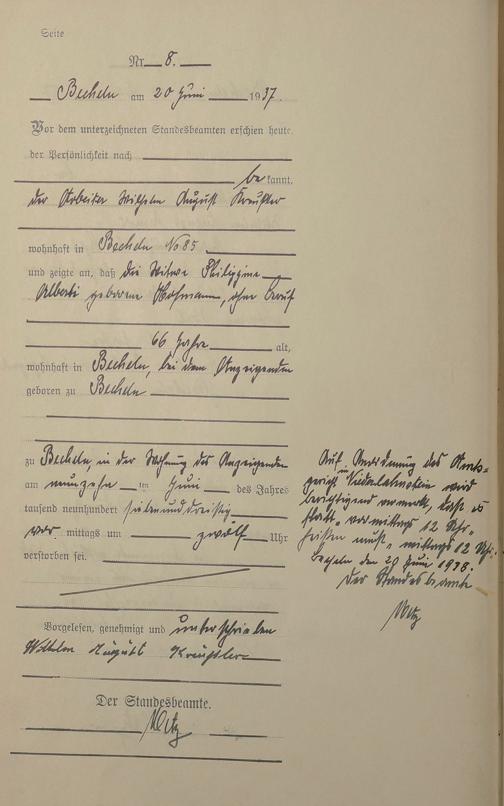 Seite
Nr. 8.
Becheln am 20 Juni 1937.
Vor dem unterzeichneten Standesbeamten erschien heute,
der Persönlichkeit nach
be kannt,
der Arbeiter Wilhelm August
wohnhaft in Becheln No 85
und zeigte an, daß die Witwe Philippine
Alberti geborene Hofmann, ohne Beruf
66 Jahre alt,
wohnhaft in Becheln, bei dem Anzeigenden
geboren zu Becheln
zu Becheln, in der Wohnung des Anzeigenden
am neunzehn ten Juni des Jahres
tausend neunhundert siebenunddreißig
vor mittags um zwölf Uhr
verstorben sei.
Vorgelesen, genehmigt und unterschrieben
Wilhelm August
Der Standesbeamte.
Metz
Auf Anordnung des Amts-
gerichts in Niederlahnstein wird
berichtigend vermerkt, daß es
statt „vormittags 12 Uhr„
heißen muß „mittags 12 Uhr.
Becheln den 28 Juni 1938.
Der Standesbeamte
Metz